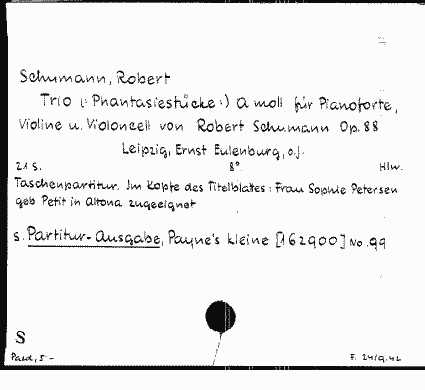 Schumann, Robert
Trio (: Phantasiestücke :) A moll für Pianoforte,
Violine u. Violoncell von Robert Schumann Op. 88
Leipzig, Ernst Eulenburg, o.J.
21 S. 8°. Hlw.
Taschenpartitur. Im Kopfe des Titelblattes: Frau Sophie Petersen
geb Petit in Altona zugeeignet
s. Partitur-Ausgabe, Payne's kleine [162900] No. 99
S
5- F. 24/9.42